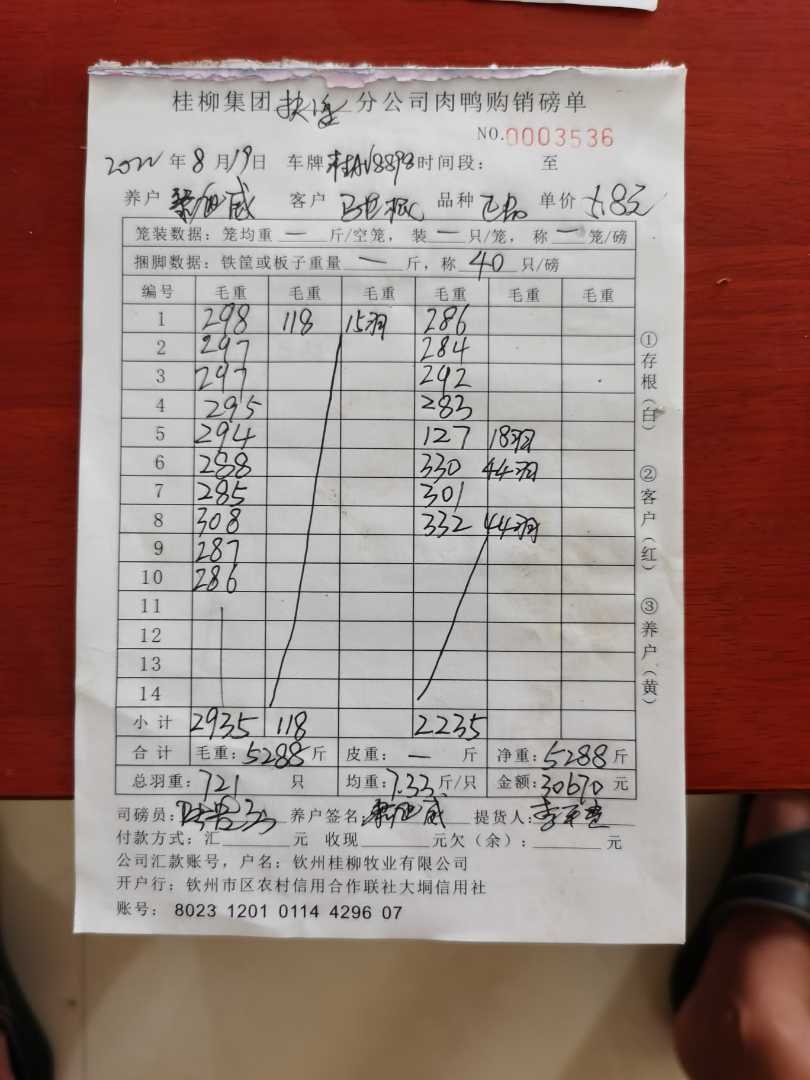 桂柳集团 分公司肉鸭购销磅单
NO.0003536
2022年8月19日 车牌 时间段: 至
养户 威 客户 品种 单价 5.8元
笼装数据:笼均重 — 斤/空笼,装 — 只/笼,称 — 笼/磅
捆脚数据:铁筐或板子重量 — 斤,称 40 只/磅
编号 毛重 毛重 毛重 毛重 毛重 毛重
1 298 118 15羽 286
2 297 284
3 297 292
4 295 283
5 294 127 18羽
6 288 330 44羽
7 285 301
8 308 332 44羽
9 287
10 286
11
12
13
14
小计 2935 118 2235
合计 毛重:5288斤 皮重: — 斤 净重:5288斤
总羽重:721 只 均重:7.33斤/只 金额:30670元
司磅员: 养户签名: 威 提货人:
付款方式:汇 元 收现 元欠(余): 元
公司汇款账号,户名:钦州桂柳牧业有限公司
开户行:钦州市区农村信用合作联社大垌信用社
账号: 8023 1201 0114 4296 07
①存根(白) ②客户(红) ③养户(黄)